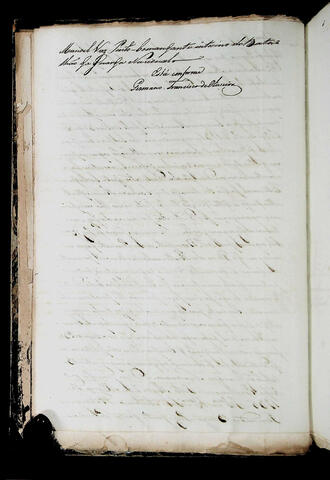 Manoel Vaz Pinto Commandante interino do Bata
lhão da Guarda Nacional
Está conforme
Germano Francisco de Oliveira